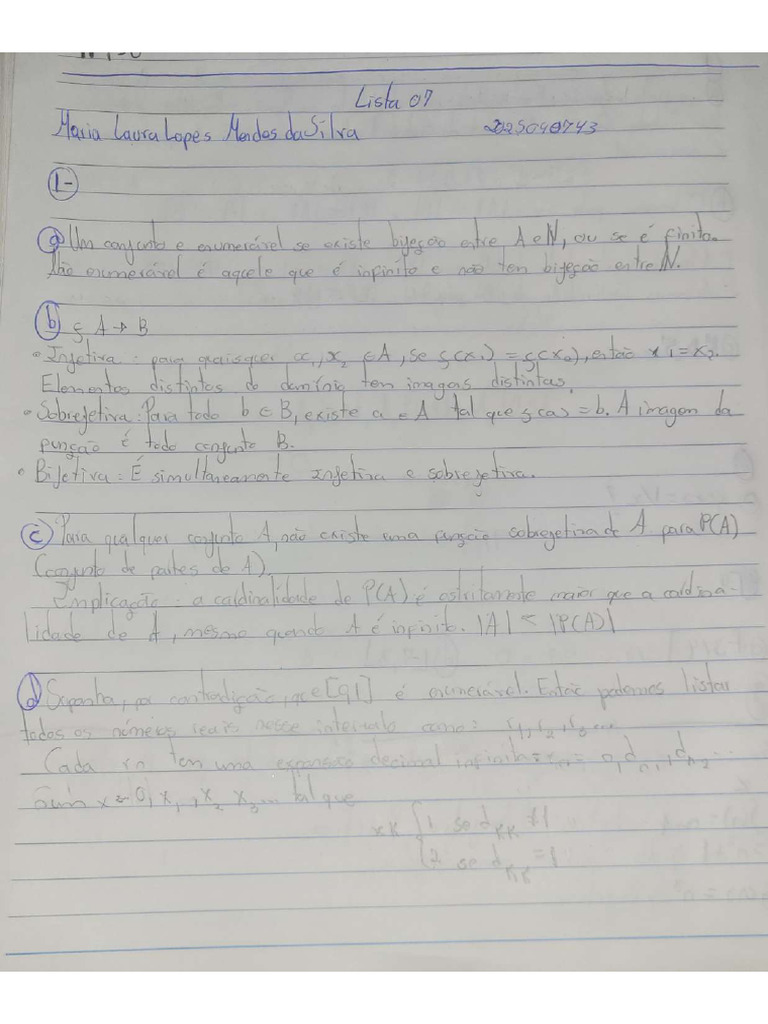 Lista 07
Maria Laura Lopes Mendes da Silva 2025040743
1-
a) Um conjunto e enumerável se existe bijeção entre A e N, ou se é finito.
Não enumerável é aquele que é infinito e não tem bijeção entre N.
b) f A → B
• Injetiva: para quaisquer x1, x2 ∈ A, se f(x1) = f(x2), então x1 = x2.
Elementos distintos do domínio tem imagens distintas.
• Sobrejetiva: Para todo b ∈ B, existe a ∈ A tal que f(a) = b. A imagem da
função é todo conjunto B.
• Bijetiva: É simultaneamente Injetiva e sobrejetiva.
c) Para qualquer conjunto A, não existe uma função sobrejetiva de A para P(A)
(conjunto de partes de A).
Implicação: a cardinalidade de P(A) é estritamente maior que a cardina-
lidade de A, mesmo quando A é infinito. |A| < |P(A)|
d) Suponha, por contradição, que [0,1] é enumerável. Então podemos listar
todos os números reais nesse intervalo como: r1, r2, r3...
Cada rn tem uma expansão decimal infinita: rn = 0,dn1, dn2...
x = 0, x1, x2 x3... tal que
xk { 1 se dkk ≠ 1
2 se dkk = 1